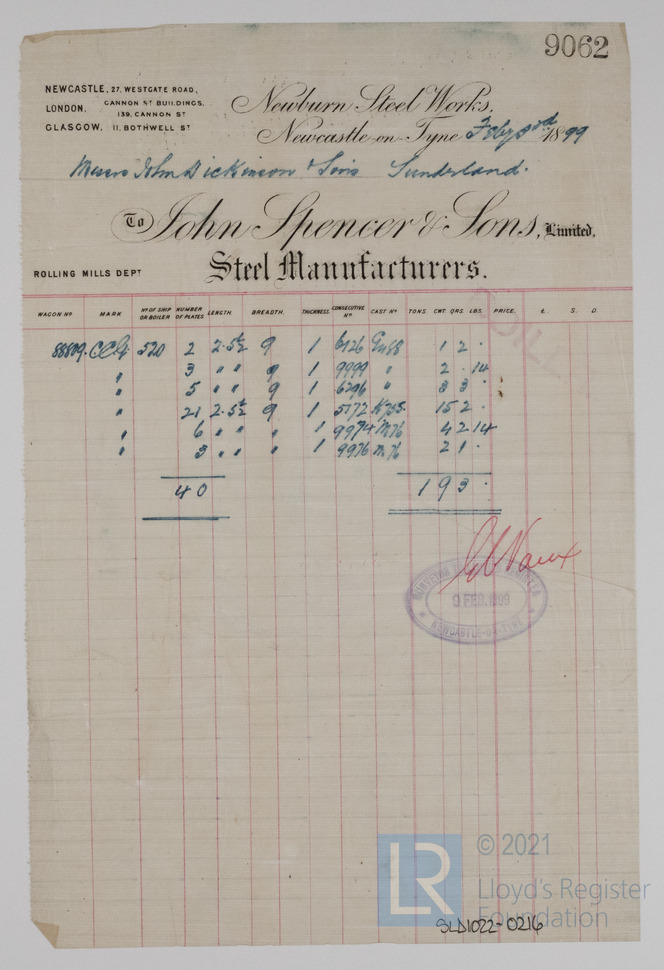 9062
NEWCASTLE, 27, WESTGATE ROAD,
LONDON, CANNON ST BUILDINGS, 139, CANNON ST
GLASGOW, 11, BOTHWELL ST
Newburn Steel Works,
Newcastle-on-Tyne Feby 3rd 1899
Messrs John Dickinson & Sons Sunderland.
To John Spencer & Sons, Limited,
Steel Manufacturers.
ROLLING MILLS DEPT
WAGON No MARK No OF SHIP OR BOILER NUMBER OF PLATES LENGTH. BREADTH. THICKNESS. CONSECUTIVE No CAST No TONS. CWT. QRS. LBS. PRICE. £. S. D.
88809. 520 2 2·5½ 9 1 6126 1 2 ·
" 3 " " 9 1 9999 " 2 · 14
" 5 " " 9 1 6296 " 3 3 ·
" 21 2·5½ 9 1 5172 15 2 ·
" 6 " " " 1 9974 M76 4 2 14
" 3 " " " 1 9976 M76 2 1 ·
40 1 9 3 ·
9 FEB. 1899
NEWCASTLE-ON-TYNE
© 2021
LR
Lloyd's Register
Foundation
SLD1022-0216